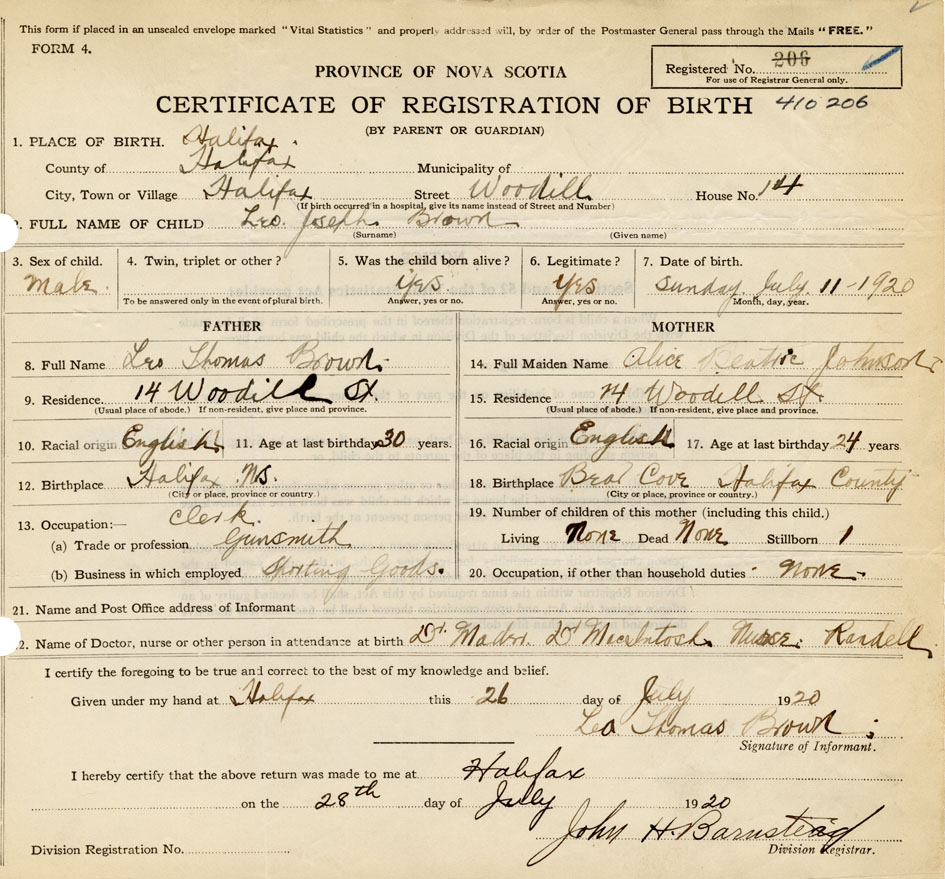 This form if placed in an unsealed envelope marked "Vital Statistics" and properly addressed will, by order of the Postmaster General pass through the Mails "FREE."
FORM 4.
Registered No. 206
For use of Registrar General only.
PROVINCE OF NOVA SCOTIA
CERTIFICATE OF REGISTRATION OF BIRTH 410206
(BY PARENT OR GUARDIAN)
1. PLACE OF BIRTH. Halifax.
County of Halifax Municipality of
City, Town or Village Halifax Street Woodill House No. 14
(If birth occurred in a hospital, give its name instead of Street and Number)
2. FULL NAME OF CHILD Leo. Joseph Brown
(Surname) (Given name)
3. Sex of child. 4. Twin, triplet or other? 5. Was the child born alive? 6. Legitimate? 7. Date of birth.
Male. yes yes Sunday. July. 11-1920
To be answered only in the event of plural birth. Answer, yes or no. Answer, yes or no. Month, day, year.
FATHER MOTHER
8. Full Name Leo Thomas Brown. 14. Full Maiden Name Alice Beatrice Johnson
9. Residence. 14 Woodill St. 15. Residence 14 Woodill St.
(Usual place of abode.) If non-resident, give place and province. (Usual place of abode.) If non-resident, give place and province.
10. Racial origin English 11. Age at last birthday 30 years. 16. Racial origin English 17. Age at last birthday 24 years
12. Birthplace Halifax NS. 18. Birthplace Bear Cove Halifax County
(City or place, province or country.) (City or place, province or country.)
13. Occupation:— Clerk. 19. Number of children of this mother (including this child.)
(a) Trade or profession Gunsmith Living None Dead None Stillborn 1
(b) Business in which employed Sporting Goods. 20. Occupation, if other than household duties None.
21. Name and Post Office address of Informant
22. Name of Doctor, nurse or other person in attendance at birth Dr. Mader. Dr MacIntosh. Nurse. Randell.
I certify the foregoing to be true and correct to the best of my knowledge and belief.
Given under my hand at Halifax this 26 day of July 1920
Leo Thomas Brown.
Signature of Informant.
I hereby certify that the above return was made to me at Halifax
on the 28th day of July 1920
John H. Barnstead
Division Registration No. Division Registrar.